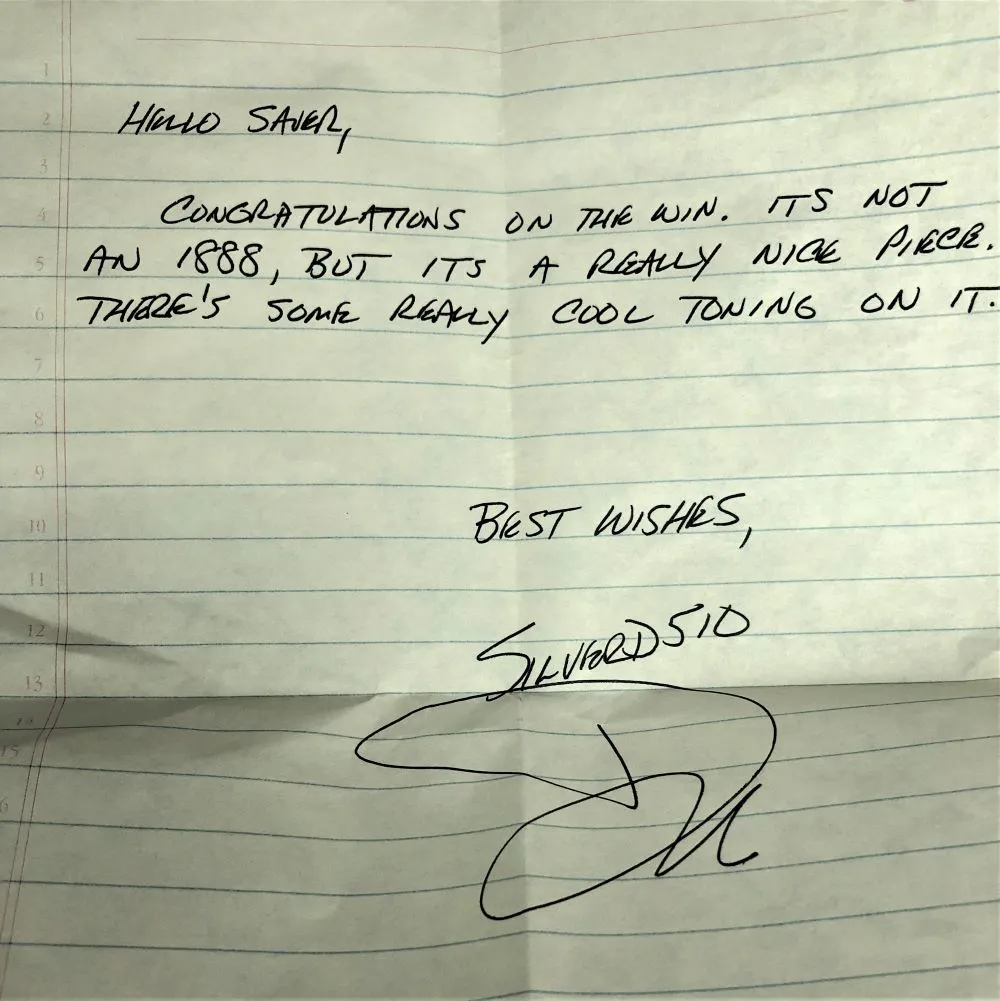 HELLO SAVER,
CONGRATULATIONS ON THE WIN. ITS NOT
AN 1888, BUT ITS A REALLY NICE PIECE.
THERE'S SOME REALLY COOL TONING ON IT.
BEST WISHES,
SILVERD510
1
2
3
4
5
6
7
8
9
10
11
12
13
14
15
6